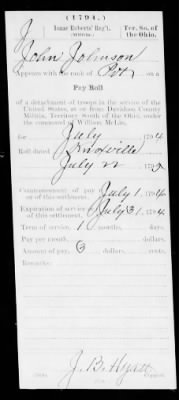 (1794.)
J
Isaac Roberts' Reg't. Ter. So. of the Ohio.
(Militia.)
John Johnson
Appears with the rank of Pvt on a
Pay Roll
of a detachment of troops in the service of the
United States, as or from Davidson County
Militia, Territory South of the Ohio, under
the command of William
for July 1794
Roll dated Knoxville
July 22 179
Commencement of pay or as of settlement, July 1, 1794
Expiration of service or of this settlement, July 31, 1794
Term of service, 1 months, days.
Pay per month, dollars, cents.
Amount of pay, 3 dollars, cents.
Remarks:
J. B. Hyatt
Copyist.